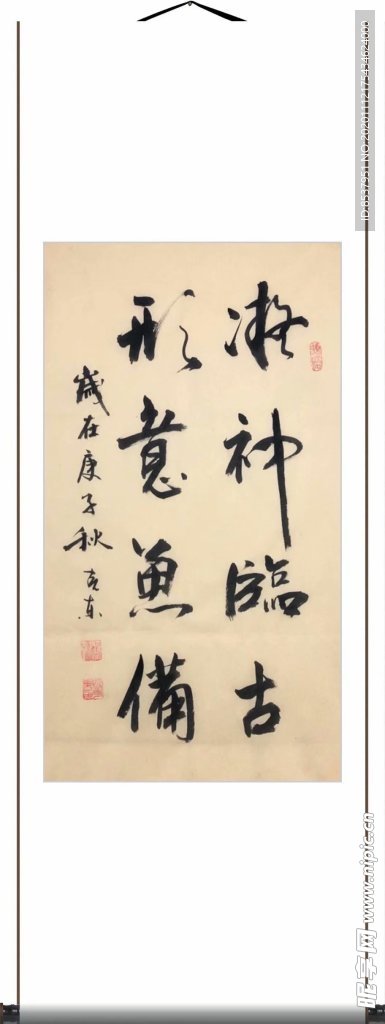 凝神臨古
形意兼備
歲在庚子秋 克東
ID:8537951 NO:20201112175434624000
昵享网 www.nipic.cn